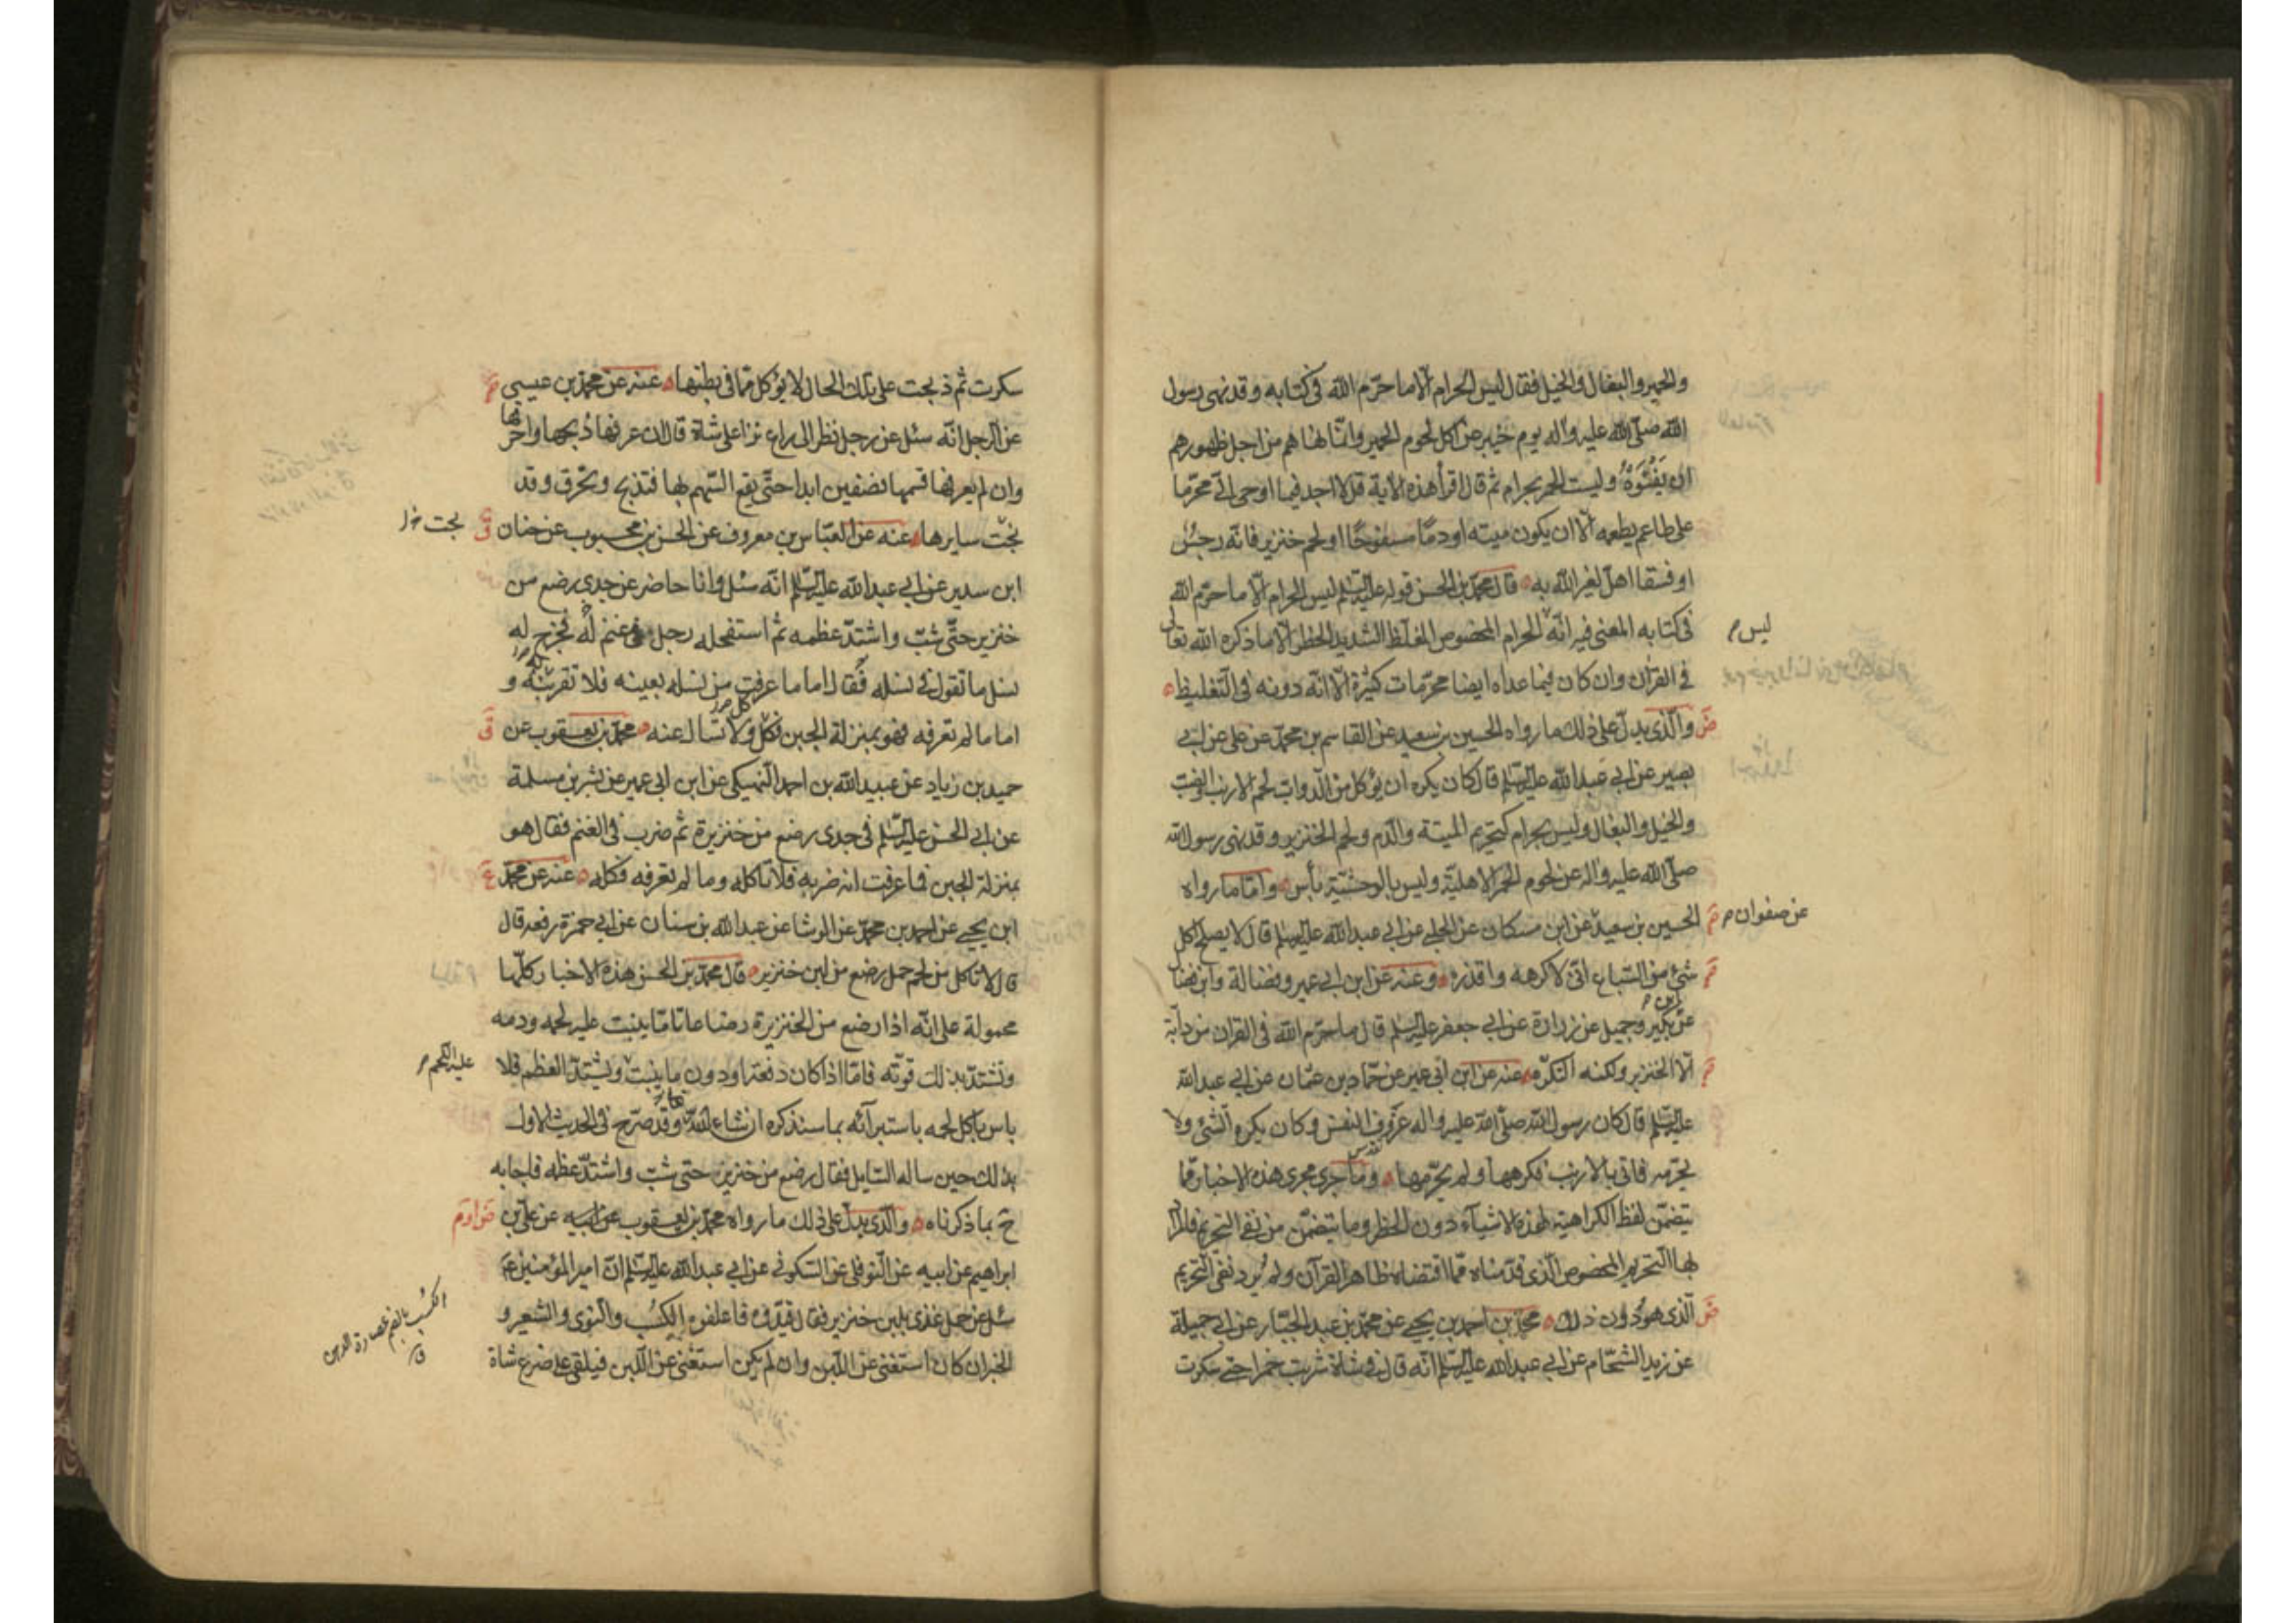 والحمير والبغال والخيل فقال ليس الحرام الا ما حرّم الله فى كتابه وقد نهى رسول
الله صلى الله عليه واله يوم خيبر عن اكل لحوم الحمير وانما نهاهم من اجل ظهورهم
ان يفنوه وليست الحمر بحرام ثم قال اقرأ هذه الاية قل لا اجد فيما اوحى الىّ محرّما
على طاعم يطعمه الّا ان يكون ميتة او دمًا مسفوحًا او لحم خنزير فانّه رجسٌ
او فسقا اهلّ لغير الله به قال محمد بن الحسن قوله عليه السلم ليس الحرام الّا ما حرّم الله
فى كتابه المعنى فيه انّه الحرام المخصوص المغلّظ الشديد الحظر الّا ما ذكره الله تعالى
ليس
فى القرآن وان كان فيما عداه ايضا محرّمات كثيرة الّا انّه دونه فى التغليظ
ض والّذى يدلّ على ذلك ما رواه الحسين بن سعيد عن القاسم بن محمّد عن على عن ابى
بصير عن ابى عبد الله عليه السلم قال كان يكره ان يؤكل من الدوابّ لحم الارنب والضبّ
والخيل والبغال وليس بحرام كتحريم الميتة والدم ولحم الخنزير وقد نهى رسول الله
صلى الله عليه واله عن لحوم الحمر الاهلية وليس بالوحشية بأس وامّا ما رواه
الحسين بن سعيد عن ابن مسكان عن الحلبى عن ابى عبد الله عليه السلم قال لا يصلح اكل
عن صفوان
شئ من السباع انّى لاكرهه واقذره وعنه عن ابن ابى عمير وفضالة وابن فضا
عن ابن بكير وجميل عن زرارة عن ابى جعفر عليه السلم قال ما حرّم الله فى القران من دابّة
الّا الخنزير ولكنه التكرّه عنه عن ابن ابى عمير عن حمّاد بن عثمان عن ابى عبد الله
عليه السلم قال كان رسول الله صلى الله عليه واله عزوف النفس وكان يكره الشئ ولا
يحرّمه فاتى بالارنب فكرهها ولم يحرّمها وما جرى مجرى هذه الاخبار ممّا
يتضمّن لفظ الكراهية لهذه الاشياء دون الحظر وما يتضمّن من نفى التحريم فالمراد
بها التحريم المخصوص الّذى قدّمناه ممّا اقتضاه ظاهر القرآن ولم يُرد نفى التحريم
ض الّذى هو دون ذلك محمّد بن احمد بن يحيى عن محمّد بن عبد الجبّار عن ابى جميلة
عن زيد الشحّام عن ابى عبد الله عليه السلم انّه قال فى شاة شربت خمرا حتى سكرت
سكرت ثم ذبحت على تلك الحال لا يؤكل ما فى بطنها عنه عن محمّد بن عيسى
عن الرجل انّه سئل عن رجل نظر الى راع نزا على شاة قال ان عرفها ذبحها واحرقها
وان لم يعرفها قسمها نصفين ابدا حتّى يقع السهم بها فتذبح وتحرق وقد
نجّت سايرها عنه عن العبّاس بن معروف عن الحسن بن محبوب عن حنان
نجت
ابن سدير عن ابى عبد الله عليه السلم انّه سئل وانا حاضر عن جدى رضع من
خنزير حتّى شبّ واشتدّ عظمه ثم استفحله رجل فى غنم له فخرج له
نسل ما تقول فى نسله فقال اما ما عرفت من نسله بعينه فلا تقربنّه و
اما ما لم تعرفه فهو بمنزلة الجبن فكل ولا تسال عنه محمّد بن يعقوب عن
حميد بن زياد عن عبيد الله بن احمد النهيكى عن ابن ابى عمير عن بشر بن مسلمة
عن ابى الحسن عليه السلم فى جدى رضع من خنزيرة ثم ضرب فى الغنم فقال هو
بمنزلة الجبن فما عرفت انه ضربه فلا تاكله وما لم تعرفه فكله عنه عن محمّد
ابن يحيى عن احمد بن محمّد عن الوشا عن عبد الله بن سنان عن ابى حمزة رفعه قال
قال لا تاكل من لحم حمل رضع من لبن خنزير قال محمّد بن الحسن هذه الاخبار كلّها
محمولة على انّه اذا رضع من الخنزيرة رضاعا تامّا ينبت عليه لحمه ودمه
وتشتدّ بذلك قوّته فامّا اذا كان دفعة او دون ما ينبت ويشتدّ العظم فلا
عليه اللحم
باس باكل لحمه باستبرآئه بما سنذكره ان شاء الله وقد صرّح فى الحديث الاول
بذلك حين ساله السايل فقال رضع من خنزير حتى شبّ واشتدّ عظمه فاجابه
ح بما ذكرناه والّذى يدلّ على ذلك ما رواه محمّد بن يعقوب عن ابيه عن على بن
ابراهيم عن ابيه عن النوفلى عن السكونى عن ابى عبد الله عليه السلم انّ امير المؤمنين ع
سئل عن حمل غذى بلبن خنزير فقال قيّدوه فاعلفوه الكُسْب والنوى والشعير و
الكسب بالضم عصارة الدهن
الخبز ان كان استغنى عن اللبن وان لم يكن استغنى عن اللبن فيلقى على ضرع شاة